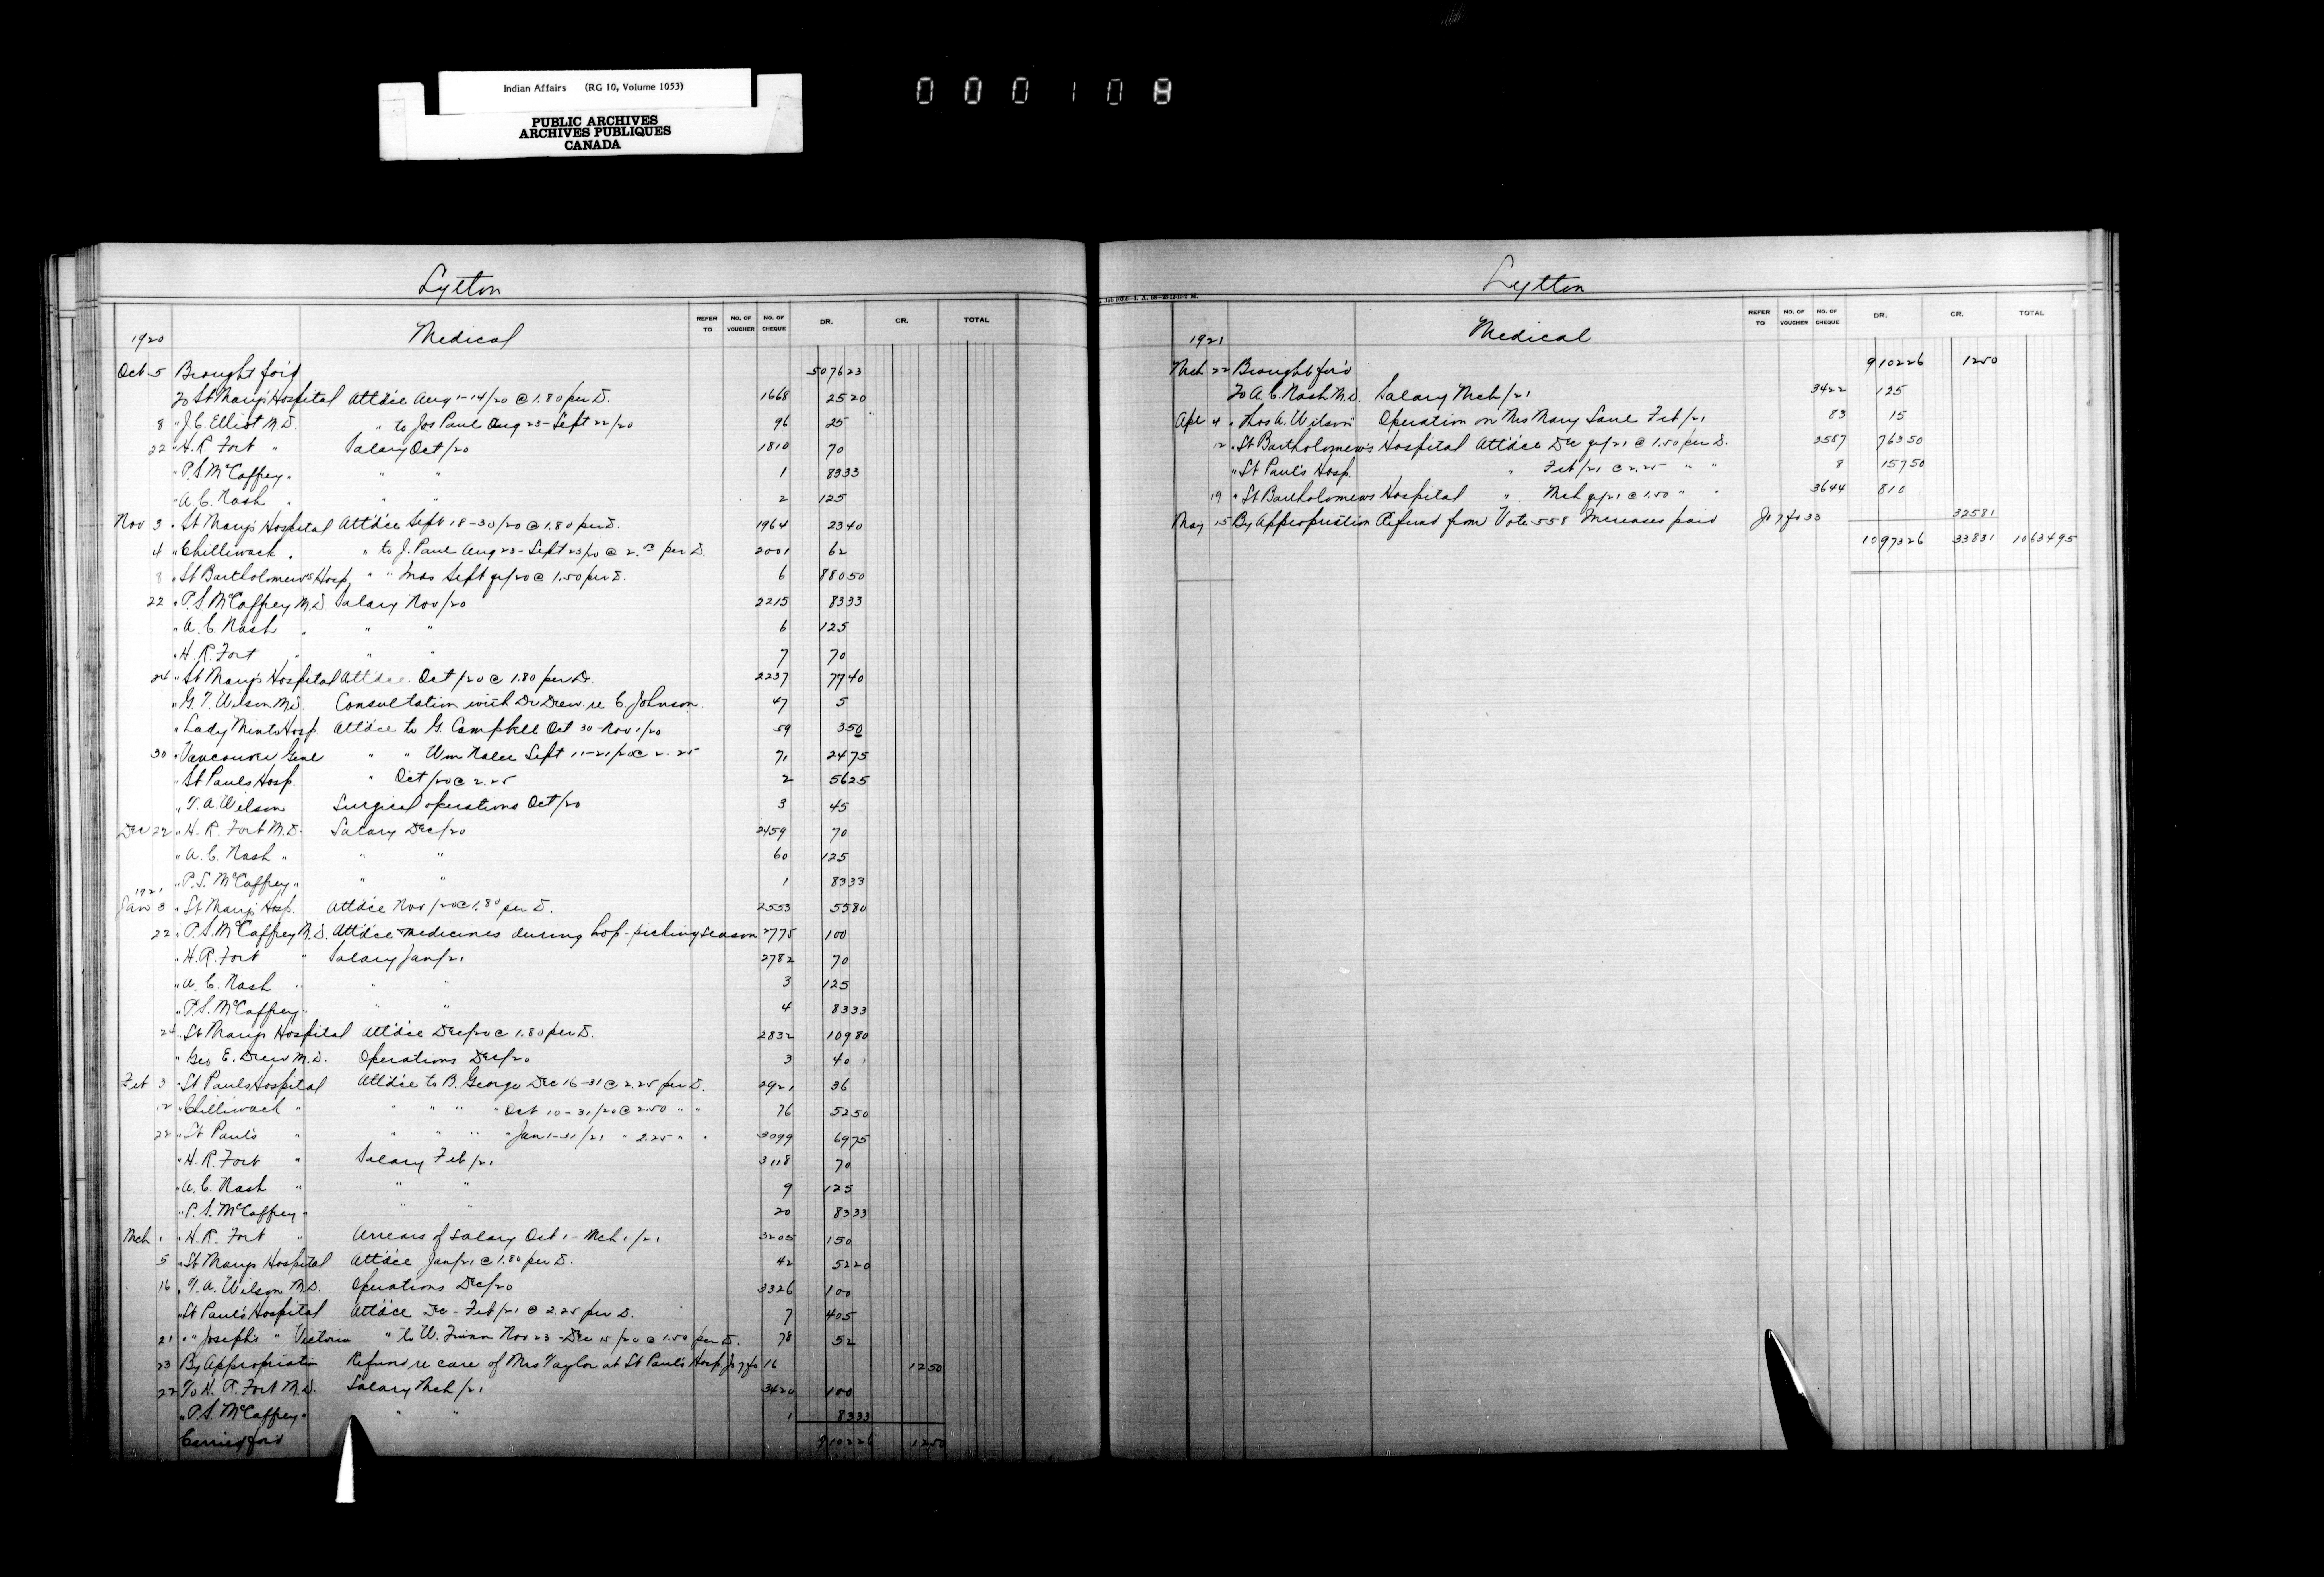 Indian Affairs (RG 10, Volume 1053)
PUBLIC ARCHIVES
ARCHIVES PUBLIQUES
CANADA
000108
Lytton
REFER TO NO. OF VOUCHER NO. OF CHEQUE DR. CR. TOTAL
1920 Medical
Oct 5 Brought for'd 507623
To St Mary's Hospital Att'dce Aug 1-14/20 @ 1.80 per D. 1668 2520
8 " J. C. Elliot M.D. " to Jos Paul Aug 23-Sept 22/20 96 25
22 " H. R. Fort " Salary Oct/20 1810 70
" P. S. McCaffrey " " " 1 8333
" A. C. Nash " " " 2 125
Nov 3 " St Mary's Hospital Att'dce Sept 18-30/20 @ 1.80 per D. 1964 2340
4 " Chilliwack " " to J. Paul Aug 23-Sept 23/20 @ 2.00 per D. 2001 62
8 " St Bartholomew's Hosp. " " Inds Sept qr/20 @ 1.50 per D. 6 88050
22 " P. S. McCaffrey M.D. Salary Nov/20 2215 8333
" A. C. Nash " " " 6 125
" H. R. Fort " " " 7 70
24 " St Mary's Hospital Att'dce Oct/20 @ 1.80 per D. 2237 7740
" G. T. Wilson M.D. Consultation with Dr Drew re C. Johnson. 47 5
" Lady Minto Hosp. Att'dce to G. Campbell Oct 30-Nov 1/20 59 350
30 " Vancouver Genl " " Wm Sept 11-21/20 @ 2.25 71 2475
" St Pauls Hosp. " Oct/20 @ 2.25 2 5625
" T. A. Wilson Surgical operations Oct/20 3 45
Dec 22 " H. R. Fort M.D. Salary Dec/20 2459 70
" A. C. Nash " " " 60 125
" P. S. McCaffrey " " " 1 8333
1921
Jan 3 " St Mary's Hosp. Att'dce Nov/20 @ 1.80 per D. 2553 5580
22 " P. S. McCaffrey M.D. Att'dce medicines during hop-picking season 2775 100
" H. R. Fort " Salary Jan/21 2782 70
" A. C. Nash " " " 3 125
" P. S. McCaffrey " " " 4 8333
24 " St Mary's Hospital Att'dce Dec/20 @ 1.80 per D. 2832 10980
" Geo E. Drew M.D. Operations Dec/20 3 40
Feb 3 " St Pauls Hospital Att'dce to B. George Dec 16-31 @ 2.25 per D. 2921 36
12 " Chilliwack " " " " " Oct 10-31/20 @ 2.50 " " 76 5250
22 " St Paul's " " " " " Jan 1-31/21 " 2.25 " " 3099 6975
" H. R. Fort " Salary Feb/21 3118 70
" A. C. Nash " " " 9 125
" P. S. McCaffrey " " " 20 8333
Mch 1 " H. R. Fort " Arrears of salary Oct 1-Mch 1/21 3205 150
5 " St Marys Hospital Att'dce Jan/21 @ 1.80 per D. 42 5220
16 " T. A. Wilson M.D. Operations Dec/20 3326 100
" St Paul's Hospital Att'dce Dec-Feb/21 @ 2.25 per D. 7 405
21 " " Joseph's " Victoria " to W. Nov 23-Dec 15/20 @ 1.50 per D. 78 52
23 By Appropriation Refund re care of Mrs Taylor at St Paul's Hosp. Jo 7 fo 16 1250
22 To H. R. Fort M.D. Salary Mch/21 3420 100
" P. S. McCaffrey " " " 1 8333
Carried for'd 910226 1250
Lytton
REFER TO NO. OF VOUCHER NO. OF CHEQUE DR. CR. TOTAL
1921 Medical
Mch 22 Brought for'd 910226 1250
To A. C. Nash M.D. Salary Mch/21 3422 125
Apl 4 " Thos A. Wilson " Operation on Mrs Mary Feb/21 83 15
12 " St Bartholomew's Hospital Att'dce Dec qr/21 @ 1.50 per D. 3587 76350
" St Paul's Hosp. " Feb/21 @ 2.25 " " 8 15750
19 " St Bartholomews Hospital " Mch qr/21 @ 1.50 " " 3644 810
May 15 By Appropriation Refund from Vote 558 Increases paid Jo 7 fo 33 32581
1097326 33831 1063495